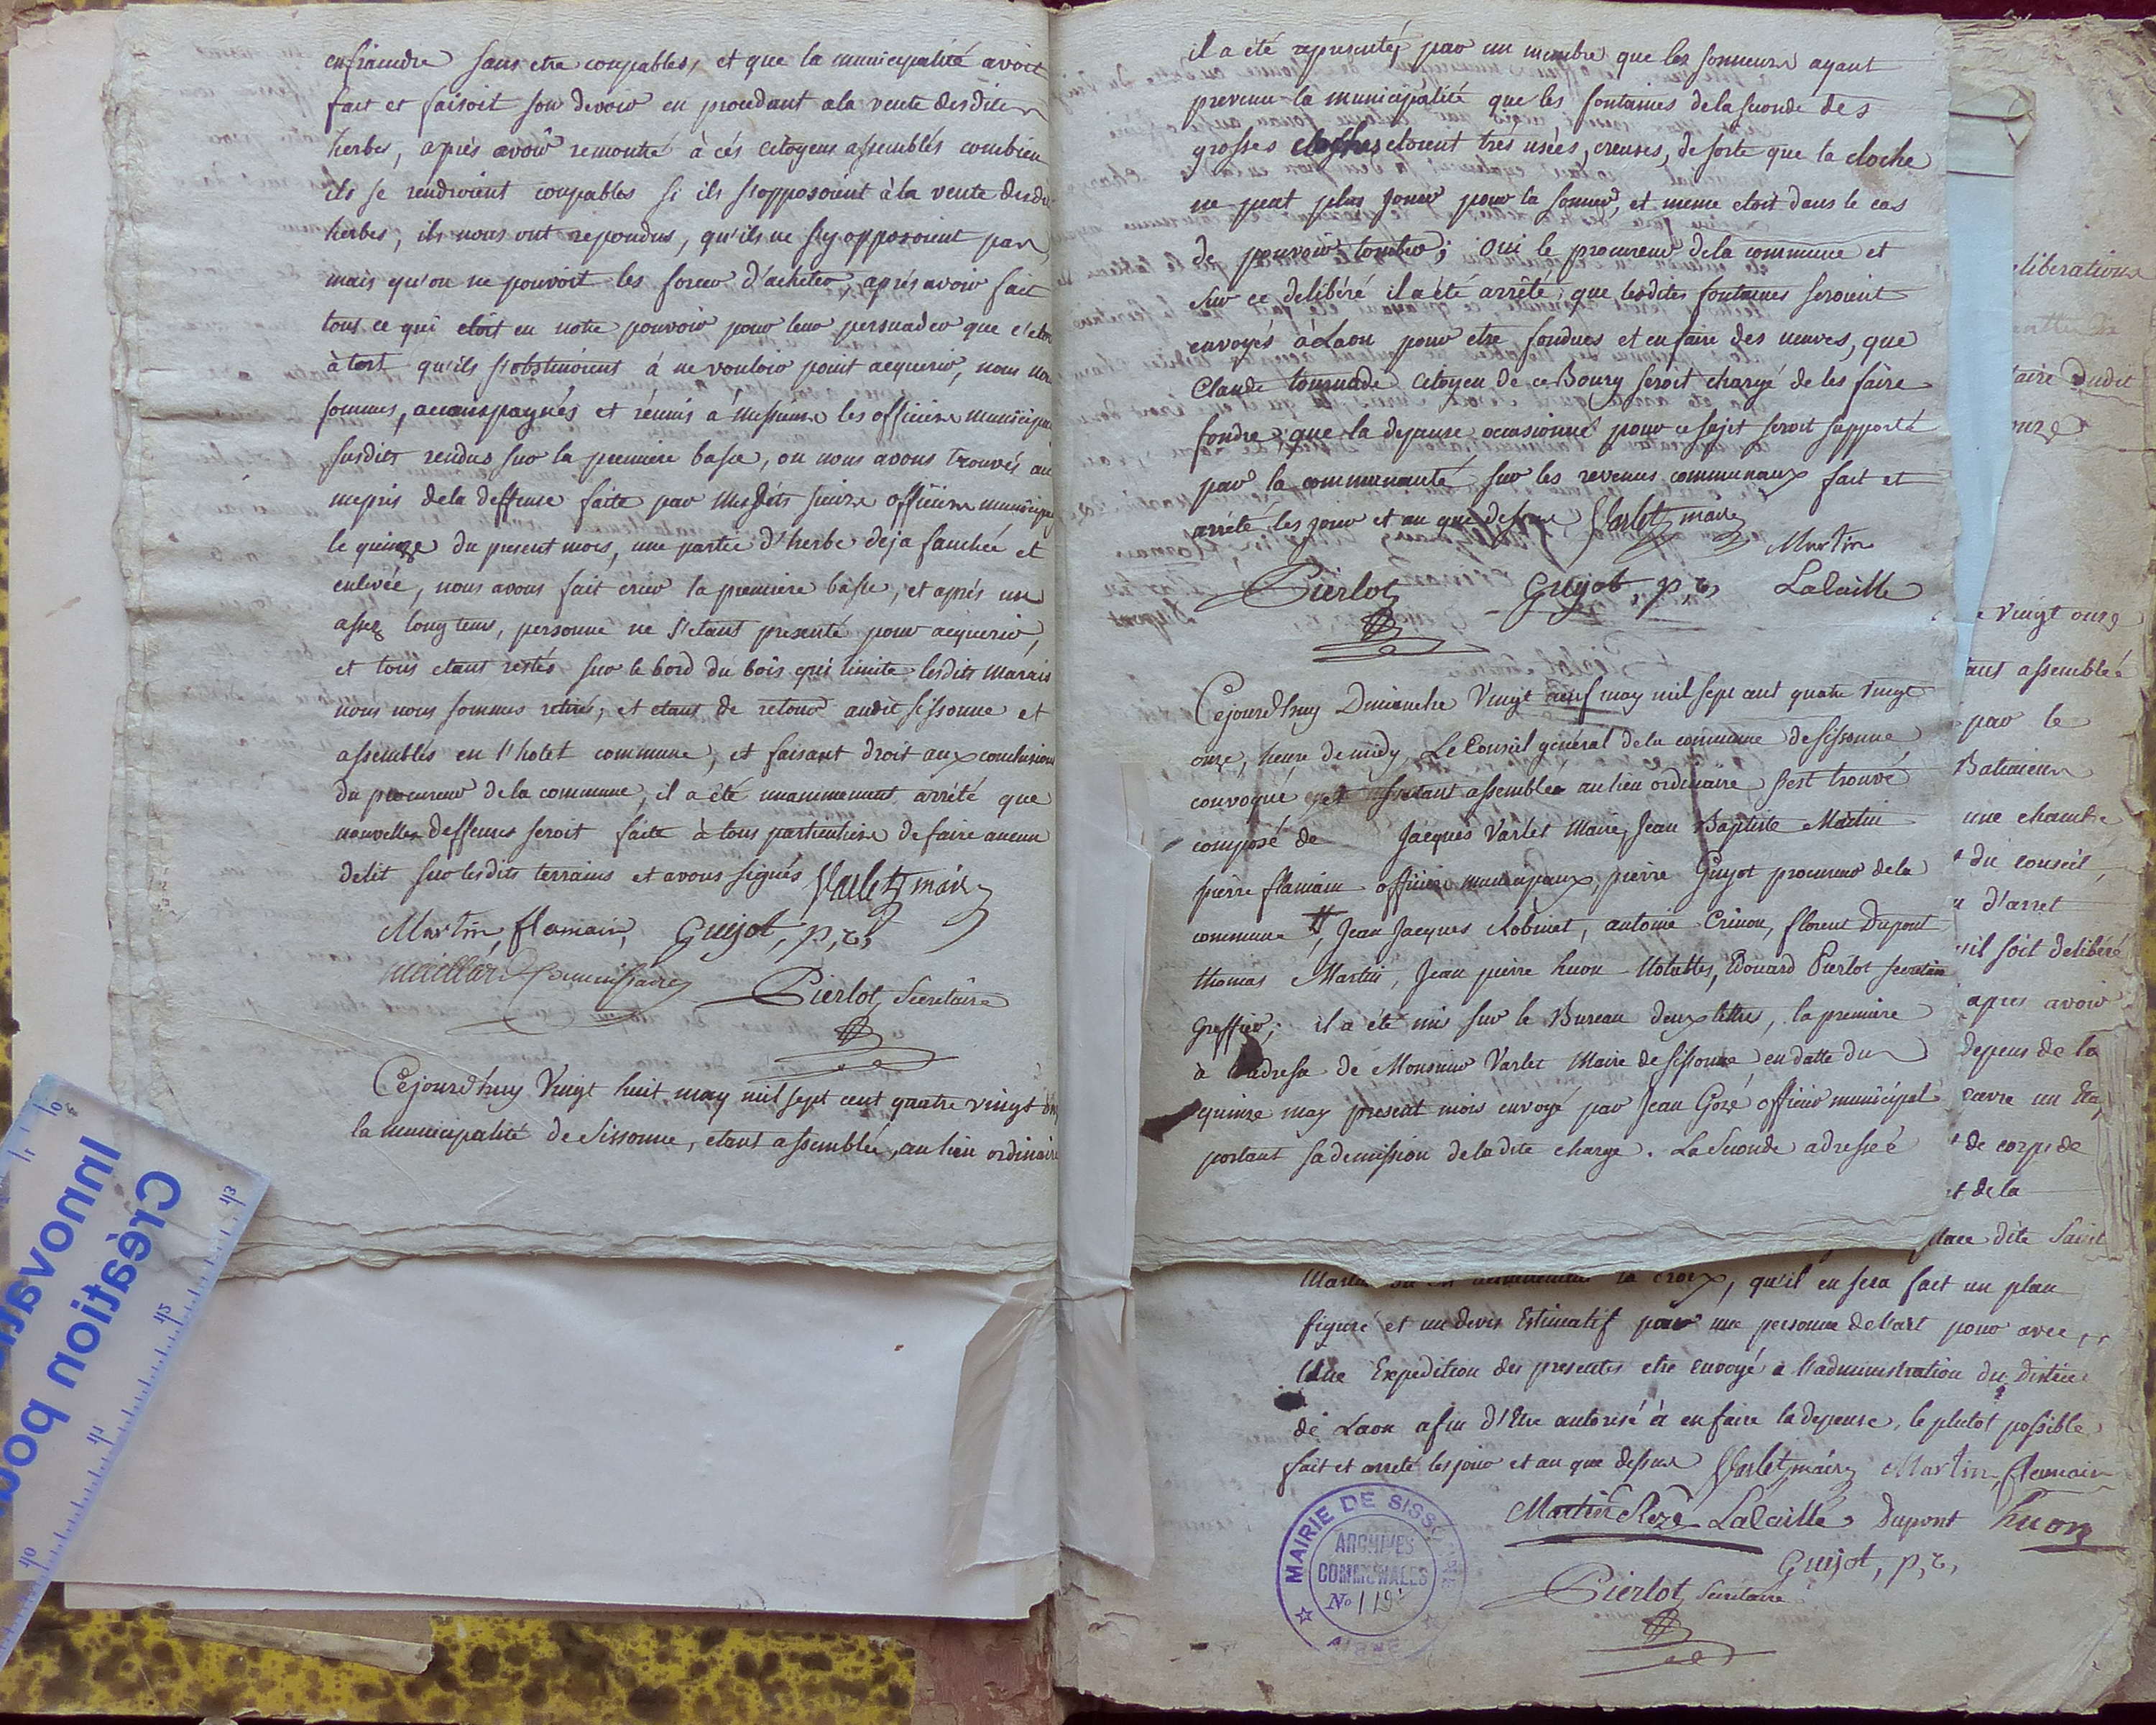 enfraindre sans etre coupables, et que la municipalité avoit
fait et faisoit son devoir en procedant a la vente desdites
herbes, aprés avoir remontré à cés citoyens assemblés combien
ils se rendroient coupables si ils s'opposoient à la vente desd.
herbes, ils nous ont repondus, qu'ils ne s'y opposoient pas
mais qu'on ne pouvoit les forcer d'acheter, aprés avoir fait
tous ce qui etoit en notre pouvoir pour leur persuader que c'etoit
à tort qu'ils s'obstinoient à ne vouloir point acquerir, nous nous
sommes, accompagnés et réunis à Messieurs les officiers municipaux
susdits rendus sur la premiere basse, ou nous avons trouvés au
mepris dela deffense faite par mesdits sieurs officiers municipaux
le quinze du present mois, une partie d'herbe deja fauchée et
enlevée, nous avons fait crier la premiere basse, et aprés un
assez long tems, personne ne s'etant presenté pour acquerir,
et tous etant restés sur le bord du bois qui limite lesdits marais
nous nous sommes retirés, et etant de retour audit sissonne et
assemblés en l'hotel commune, et faisant droit aux conclusions
du procureur dela commune, il a été unanimement arrété que
nouvelles deffenses seroit faite à tous particuliers de faire aucun
delit sur lesdits terrains et avons signés Varlet maire
Martin, flamain, Guyot, p, c,
maillard Commissaire
Pierlot, Secretaire
Cejourd'huy Vingt huit may mil sept cent quatre vingt onze
la municipalité de Sissonne, etant assemblée, au lieu ordinaire
il a été representé par un membre que les sonneurs ayant
prevenu la municipalité que les fontaines dela seconde des
grosses cloches etoient trés usées, creuses, de sorte que la cloche
ne peut plus jouer pour la sonner, et meme etoit dans le cas
de pouvoir tomber; Oui le procureur dela commune et
sur ce delibéré il a été arrêté; que lesdites fontaines seroient
envoyés à Laon pour etre fondues et en faire des neuves, que
Claude tournade citoyen de ce Bourg seroit chargé de les faire
fondre que la depense occasionné pour ce sujet seroit supporté
par la communauté sur les revenus communaux fait et
arrété les jour et an que dessus Varlet maire
Martin
Pierlot Guyot, p, c, Lacaille
Cejourd'huy Dimanche Vingt neuf may mil sept cent quatre vingt
onze, heure de midy, Le Conseil général dela commune de sissonne
convoqué et etant assemblée au lieu ordinaire s'est trouvé
composé de Jacques Varlet Maire, Jean Baptiste Martin
pierre flamain officiers municipaux, pierre Guyot procureur dela
commune, Jean Jacques Robinet, antoine Crinon, florent Dupont
thomas Martin, Jean pierre huon Notables, Edouard Pierlot secretaire
Greffier; il a été mis sur le Bureau deux lettres, la premiere
à l'adresse de Monsieur Varlet Maire de sissonne en datte du
quinze may present mois envoyé par Jean Gozé officier municipal
portant sa demission de ladite charge. La Seconde adressée
eliberations
taire dudit
onze
e vingt onze
tant assemblée
par le
Batimens
une chambre
du conseil,
d'arret
il soit delibéré
apres avoir
depens de la
de corps de
et de la
place dite Saint
la croix, qu'il en sera fait un plan
figuré et un devis Estimatif par une personne de l'art pour avec
Une Expedition des presentes etre envoyé à l'administration du District
de Laon afin d'Etre autorisé à en faire la depense, le plutot possible
fait et arreté les jour et an que dessus Varlet maire Martin, flamain
Martin Rezé Lacaille Dupont huon
Guyot, p, c,
Pierlot Secretaire
MAIRIE DE SISSONNE
ARCHIVES
COMMUNALES
No 119
AISNE
Création pou
Innovat
40 41 42 43